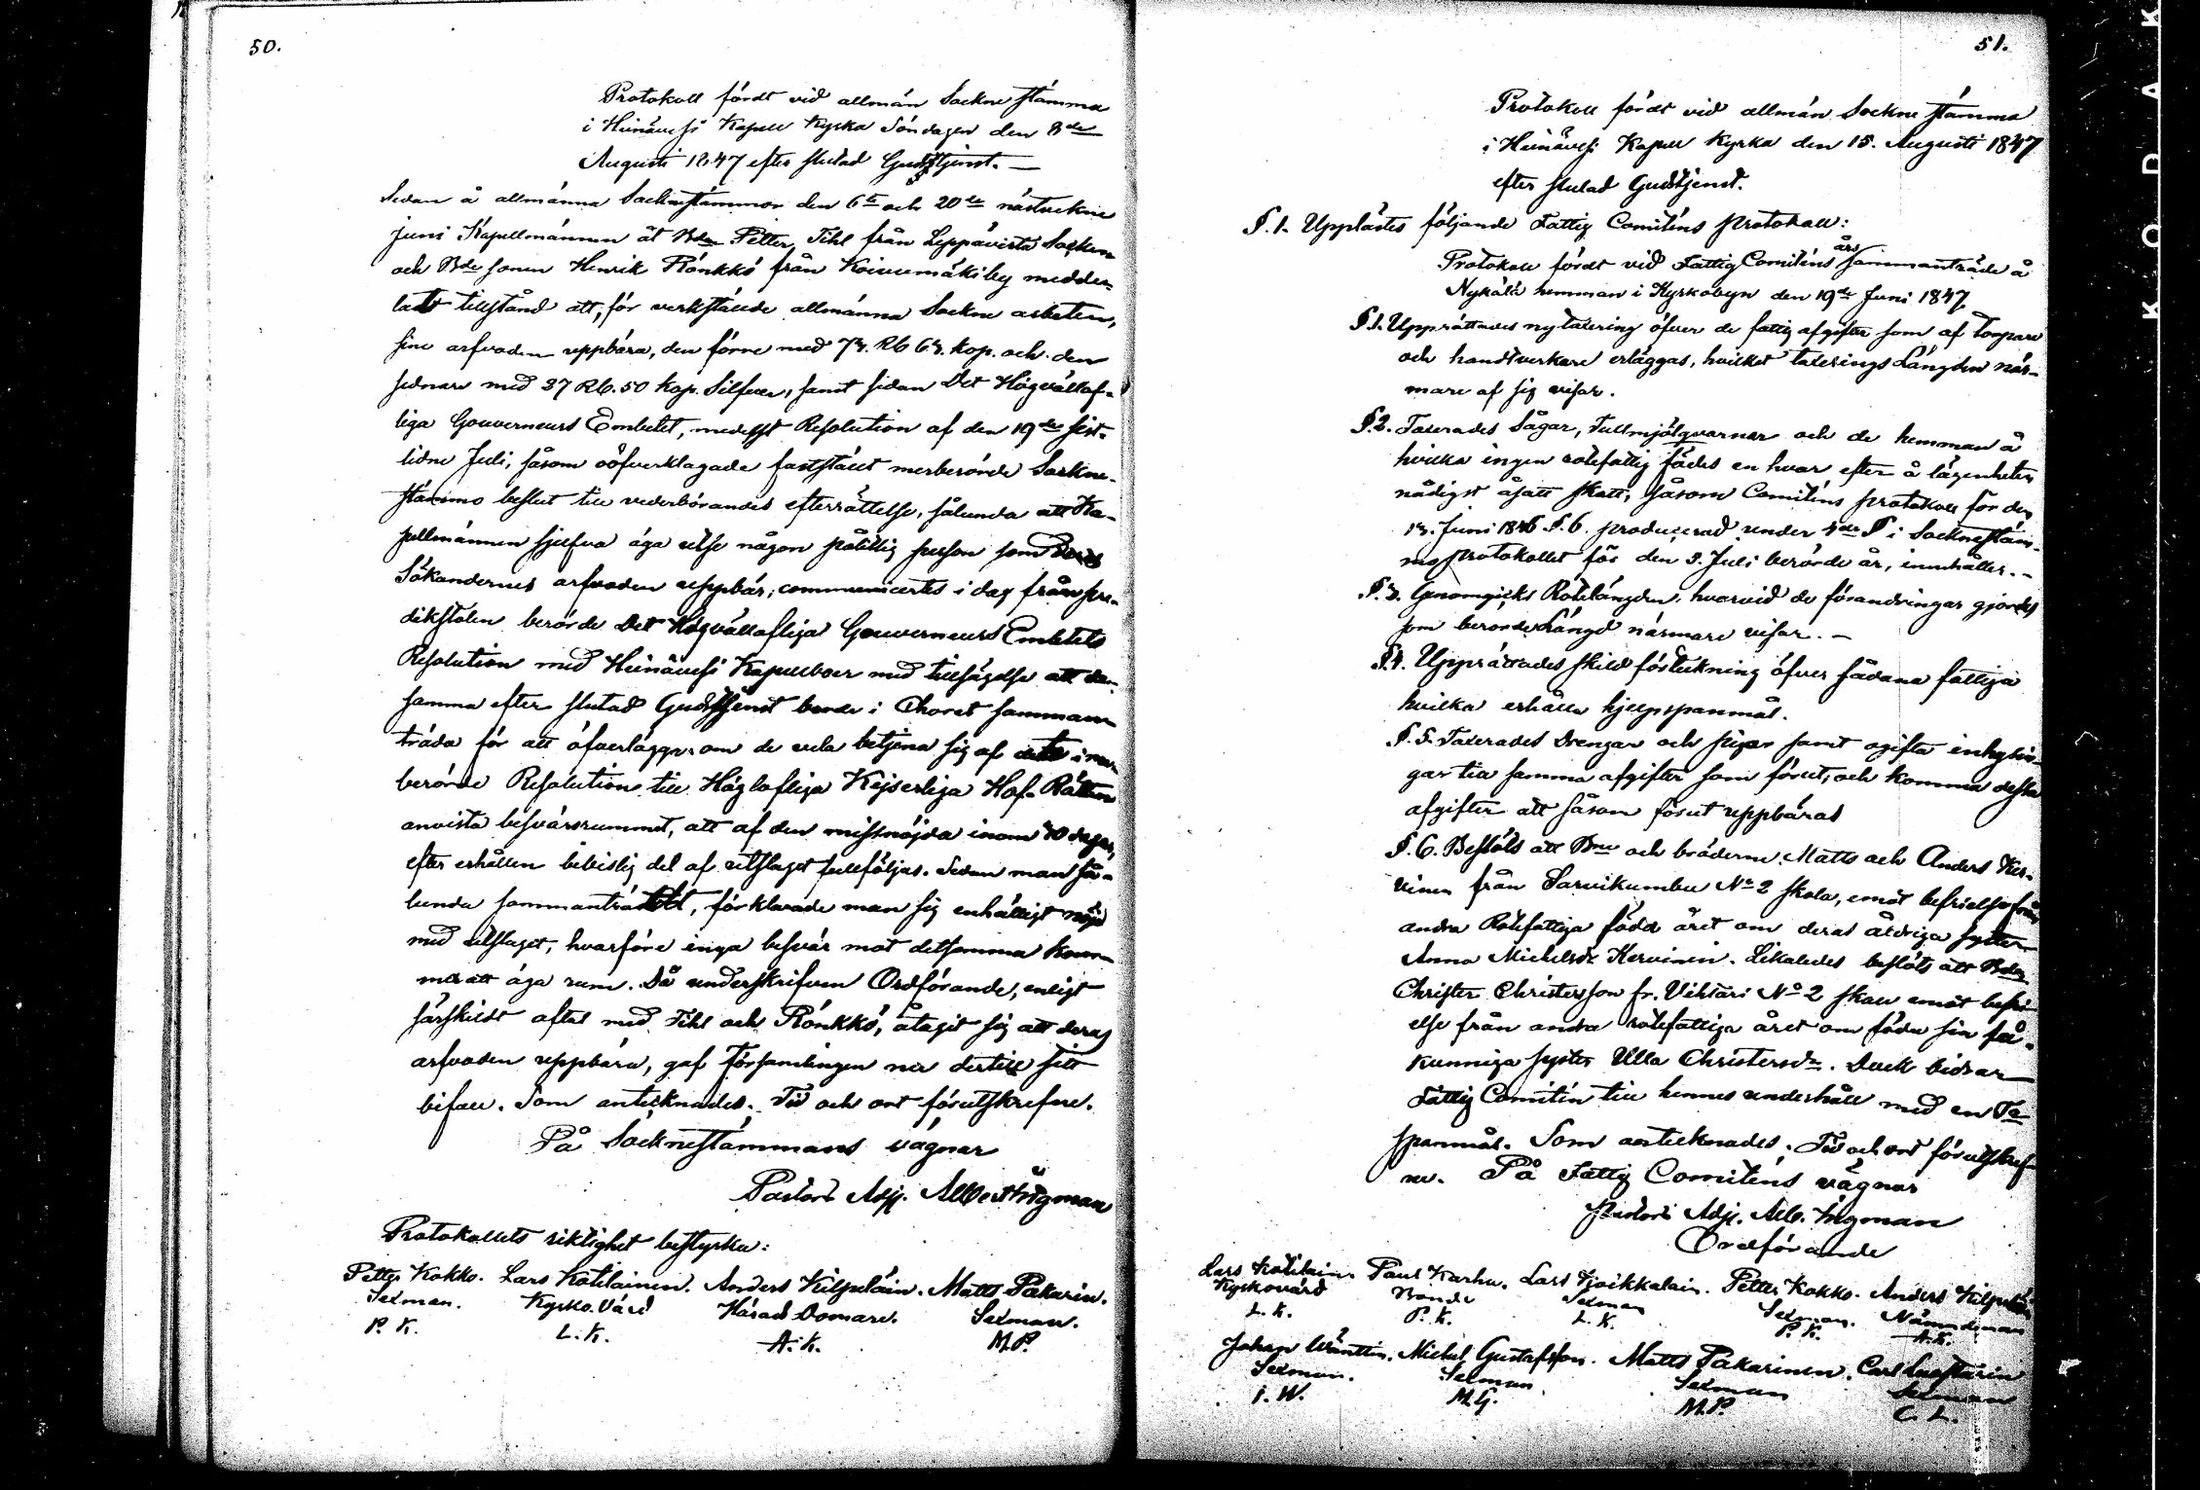 50.
Protokoll fördt vid allmän Sockne stämma
i Heinävesi Kapell Kyrka Söndagen den 8de
Augusti 1847 efter slutad Gudstjenst. —
Sedan å allmänna Socknestämmor den 6te och 20de nästvekne
Juni Kapellmännen åt Bden Petter Tihl från Leppävirta Socken
och Bdesonen Henrik Rönkkö från Koivumäki by medde-
latt tillstånd att, för verkstälde allmänna Sockne arbeten,
sine arfvoden uppbära, den förre med 73. Rb 63. kop. och den
sednare med 37 Rb. 50 kop. Silfver, samt sidan Det Högvällof-
liga Gouverneurs Embetet, medelst Resolution af den 19de sist-
lidne Juli, såsom oöfverklagade fastställt merberörde Sockne-
stämmo beslut till vederbörandes efterrättelse, sålunda att Ka-
pellmännen sjelfva äga utse någon pålitlig person som
Sökandernes arfvoden uppbär; communicertes i dag från pre-
dikstolen berörde Det Högvällofliga Gouverneurs Embetets
Resolution med Heinävesi Kapellboer med tillsägelse att den-
samma efter slutad Gudstjenst borde i Choret samman-
träda för att öfverlägga om de vela betjena sig af det i mer
berörde Resolution till Höglofliga Kejserliga Hof-Rätten
anvista besvärsrummet, att af den missnöjda inom 30 dagar,
efter erhållen bevislig del af utslaget fullföljas. Sedan man så-
lunda sammanträdtt, förklarade man sig enhälligt nöjd
med utslaget, hvarföre inga besvär mot detsamma kom-
mer att äga rum. Då underskrifven Ordförande, enligt
särskildt aftal med Tihl och Rönkkö, åtagit sig att deras
arfvoden uppbära, gaf Församlingen nu dertill sitt
bifall. Som antecknades. Tid och ort förutskrefne.
På Socknestämmans vägnar
Pastors Adj. Albert Ingman
Protokollets riktighet bestyrka:
Petter Kokko. Lars Kotilainen. Anders Kilpeläin. Matts Pakarin.
Sexman. Kyrko Värd Härads Domare. Sexman.
P. K. L. K. A. K. M. P.
51.
Protokoll fördt vid allmän Sockne stämma
i Heinävesi Kapell Kyrka den 15. Augusti 1847
efter slutad Gudstjenst.
§. 1. Upplästes följande Fattig Comiténs protokoll:
Protokoll fördt vid Fattig Comiténs års sammanträde å
Nykälä hemman i Kyrkobyn den 19de Juni 1847.
§ 1. Upprättades ny taxering öfver de fattig afgifter som af Torpare
och handtverkare erläggas, hvilket taxerings Längden när-
mare af sig visar.
§. 2. Taxerades Sågar, Tullmjölqvarnar och de hemman å
hvilka ingen rotefattig födes en hvar efter å lägenheten
nådigst åsatt skatt, såsom Comiténs protokoll för den
13. Juni 1846 §. 6. producerad under 4de § i Socknestäm-
moprotokollet för den 5. Juli berörde år, innehåller. —
§. 3. Genomgicks Rotelängden, hvarvid de förandringar gjordes
som berörde Längd närmare visar. —
§. 4. Upprättades skild förteckning öfver sådana fattiga
hvilka erhålla hjelpspanmål.
§. 5. Taxerades Drengar och pigor samt ogifta inhysin-
gar till samma afgifter som förut, och komma dessa
afgifter att såsom förut uppbäras
§. 6. Beslöts att Bne och bröderne Matts och Anders Ker-
vinen från Sarvikumbu No 2 skola, emot befrielse från
andra Rotefattiga föda året om deras åldriga syster
Anna Michelsdr Kervinen. Likaledes beslöts att Bden
Christer Christersson fr. Vihtari No 2 skall emot befri-
else från andra rotefattiga året om föda sin få-
kunniga syster Ulla Christersdr. Dock bidrar
Fattig Comitén till hennes underhåll med en Ta
spanmål. Som antecknades. Tid och ort förutskref-
ne. På Fattig Comiténs vägnar
Pastors Adj. Alb. Ingman
Ordförande
Lars Kotilain. Paul Karhu. Lars Tjoikkalain. Petter Kokko. Anders Kilpeläin
Kyrkovärd Bonde Sexman Sexman. Nämndeman
L. K. P. K. L. K. P. K. A. K.
Johan Wänttin. Michel Gustafsson. Matts Pakarinen. Carl Lustarin
Sexman. Sexman. Sexman Sexman
J. W. M. G. M. P. C. L.
KODAK